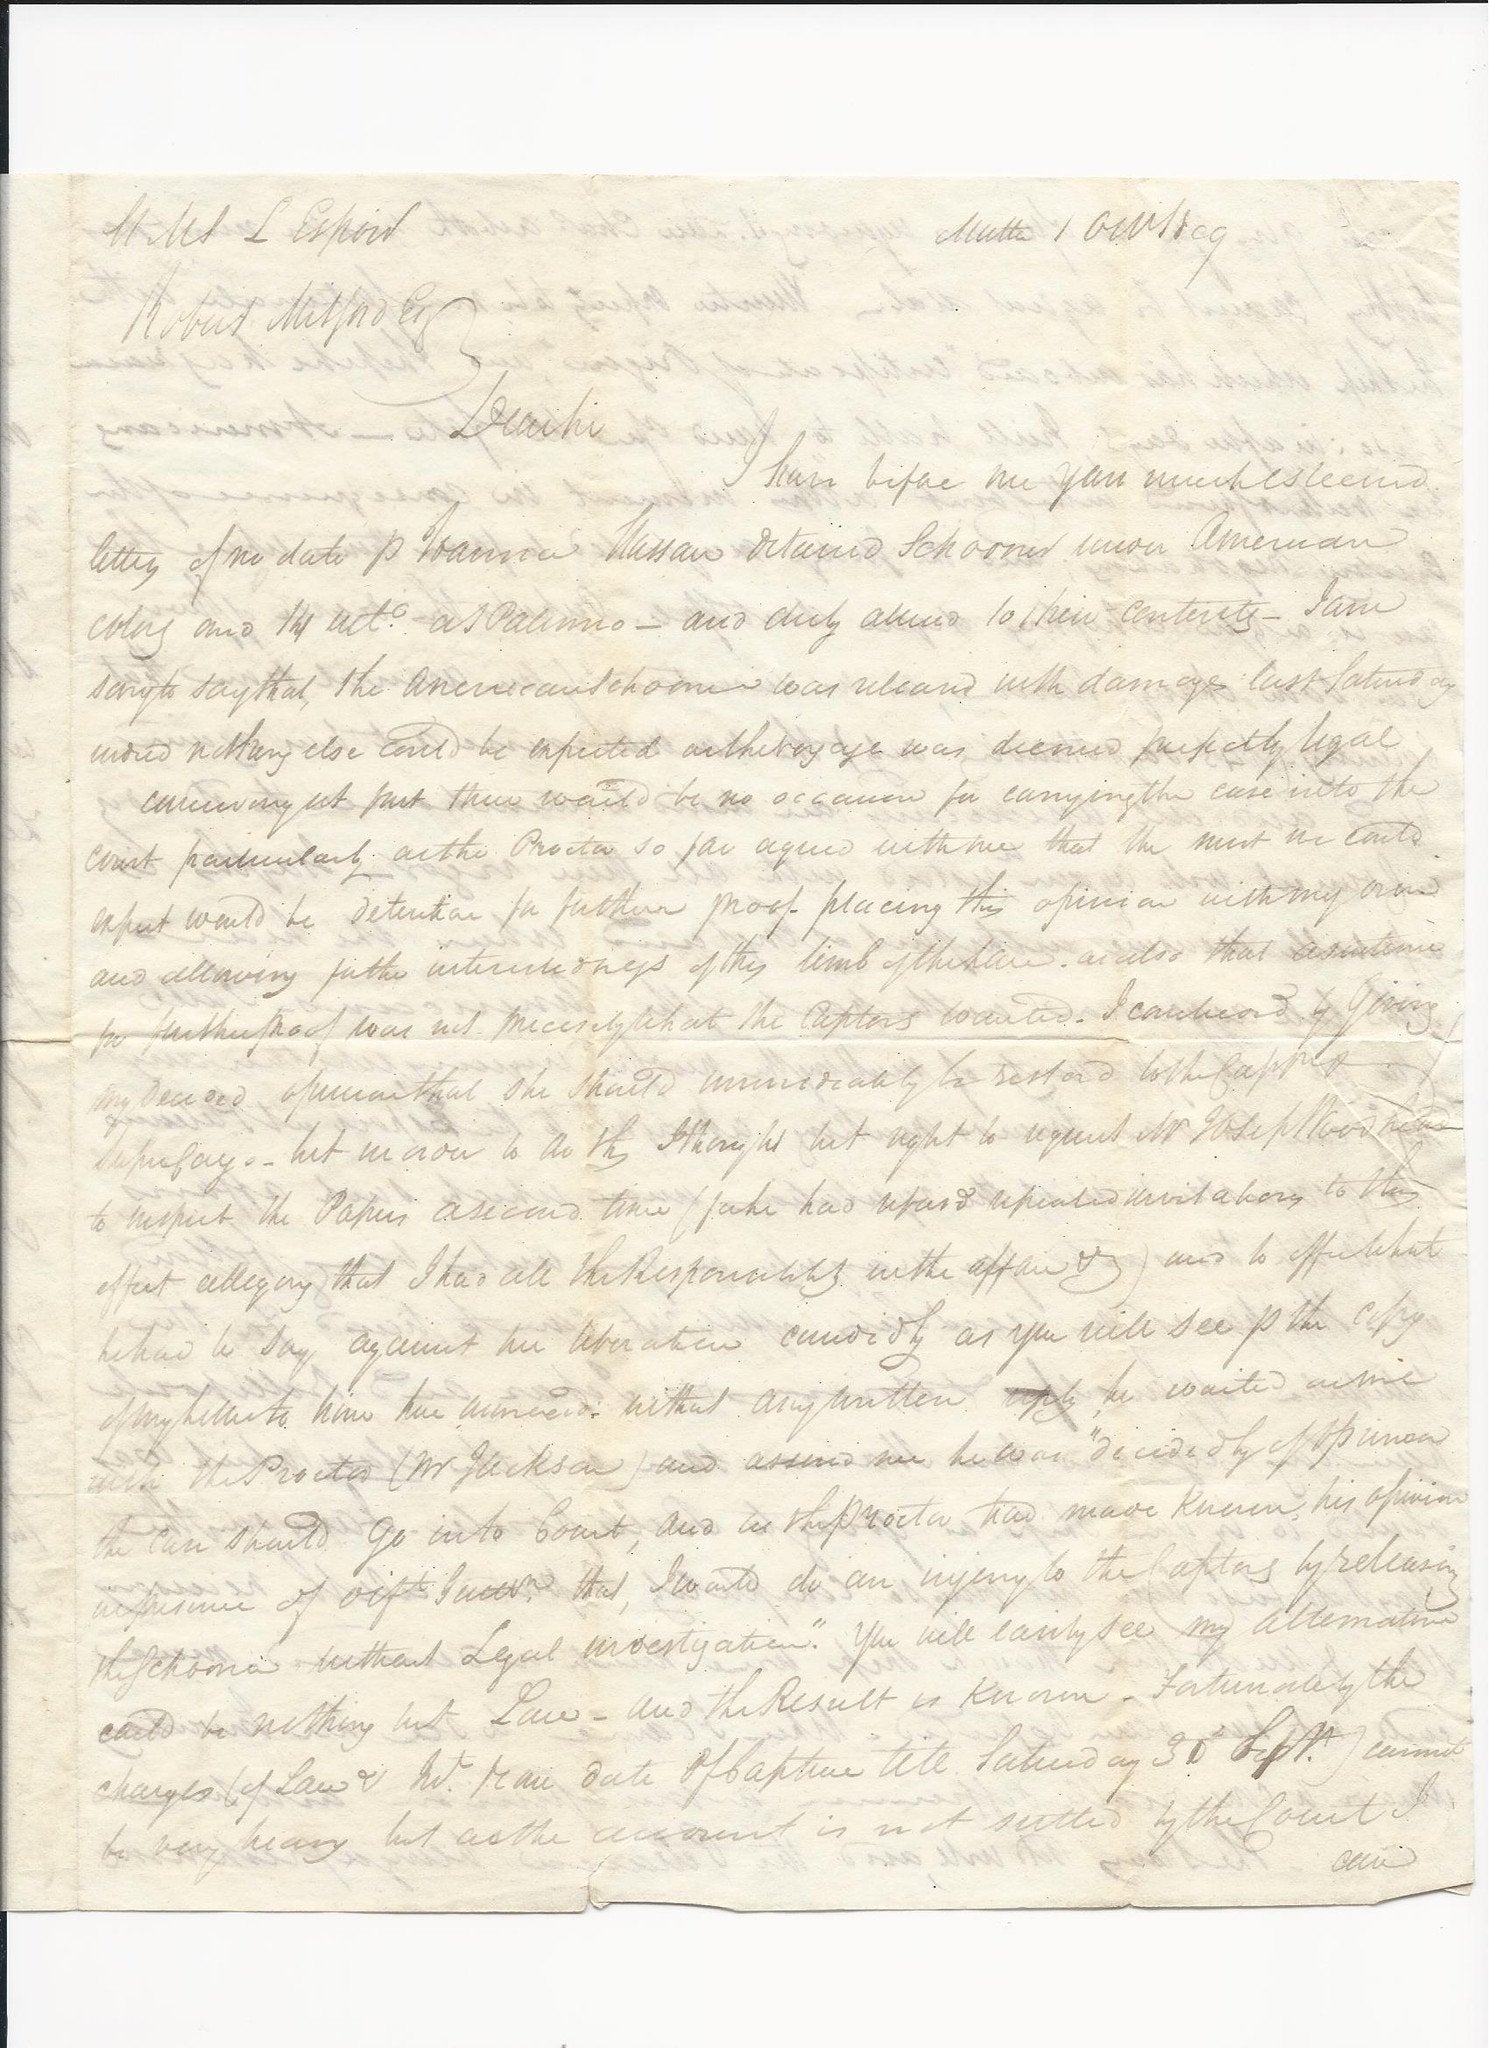 HMS L Espoir
Malta 1 Oct 1809
Robert Mitford Esq
Dear Sir
I have before me your much esteemed
letters of no date p Hassan detained Schooner under American
colors and 14 ulto. at Palermo – and duly attend to their contents – I am
sorry to say that, the American Schooner was released with damages last Saturday
indeed nothing else could be expected as the voyage was deemed perfectly legal
conceiving at first there would be no occasion for carrying the case into the
court particularly as the Proctor so far agreed with me that the most we could
expect would be detention for further proof. placing this opinion with my own
and allowing for the interestedness of this limb of the Law. as also that a sentence
for further proof was not precisely what the Captors wanted. I concluded by giving
my decided opinion that she should immediately be restored to the Captn &
Supercargo – but in order to do this I thought but right to request Mr Joseph Woodhouse
to inspect the Papers a second time (for he had refused repeated invitations to this
effect alleging that I had all the Responsibility in the affair &c) and to offer what
he had to say against her liberation candidly as you will see p the copy
of my letter to him here annexed. without any written reply, he waited on me
with the Proctor (Mr Jackson) and assured me he was "decidedly of opinion
the case should go into Court, and as the Proctor had made known, his opinion
in presence of that, I would do an injury to the Captors by releasing
the Schooner without Legal investigation". You will easily see my alternative
could be nothing but Law – and the Result is known – Fortunately the
charges (of Law & from date of Capture till Saturday 30 Sept.) cannot
be very heavy but as the account is not settled by the Court I
can